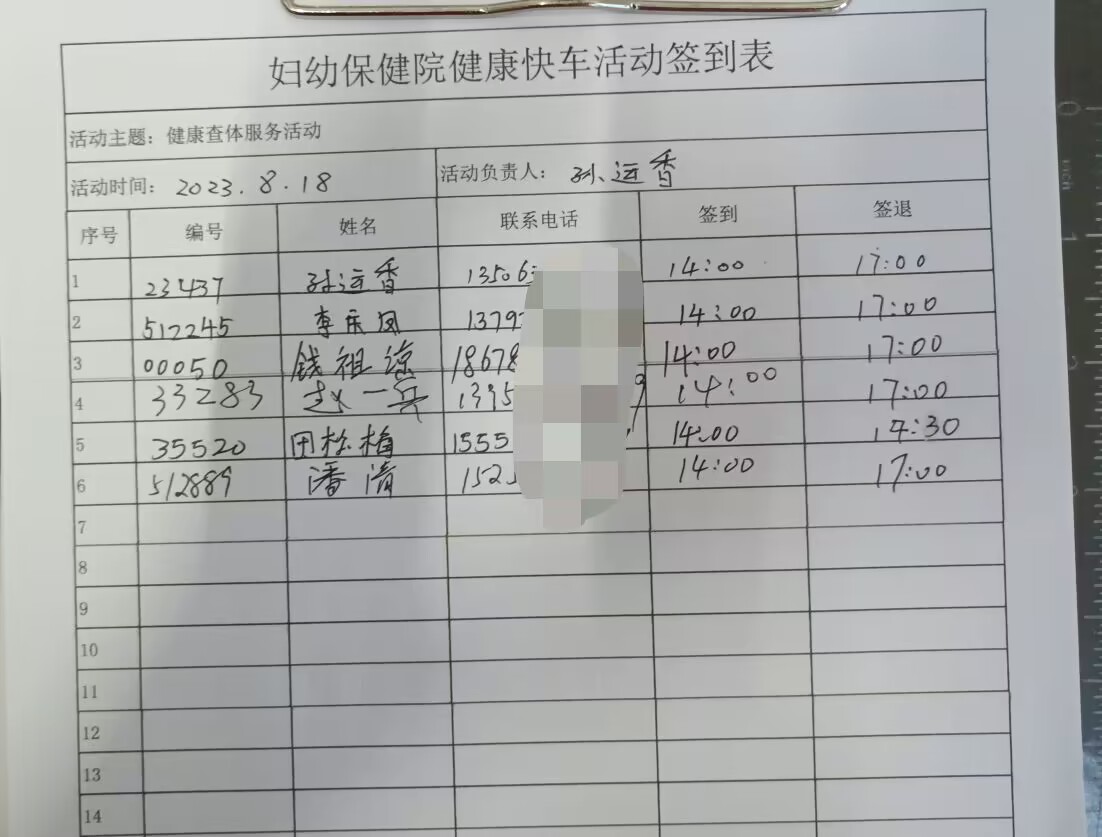 妇幼保健院健康快车活动签到表
活动主题：健康查体服务活动
活动时间：2023.8.18 活动负责人：孙运香
序号 编号 姓名 联系电话 签到 签退
1 23437 孙运香 13506 14:00 17:00
2 512245 李庆凤 1379 14:00 17:00
3 00050 钱祖谅 18678 14:00 17:00
4 33283 赵一兵 1395 14:00 17:00
5 35520 田松梅 1555 14:00 14:30
6 512889 潘清 152 14:00 17:00
7
8
9
10
11
12
13
14